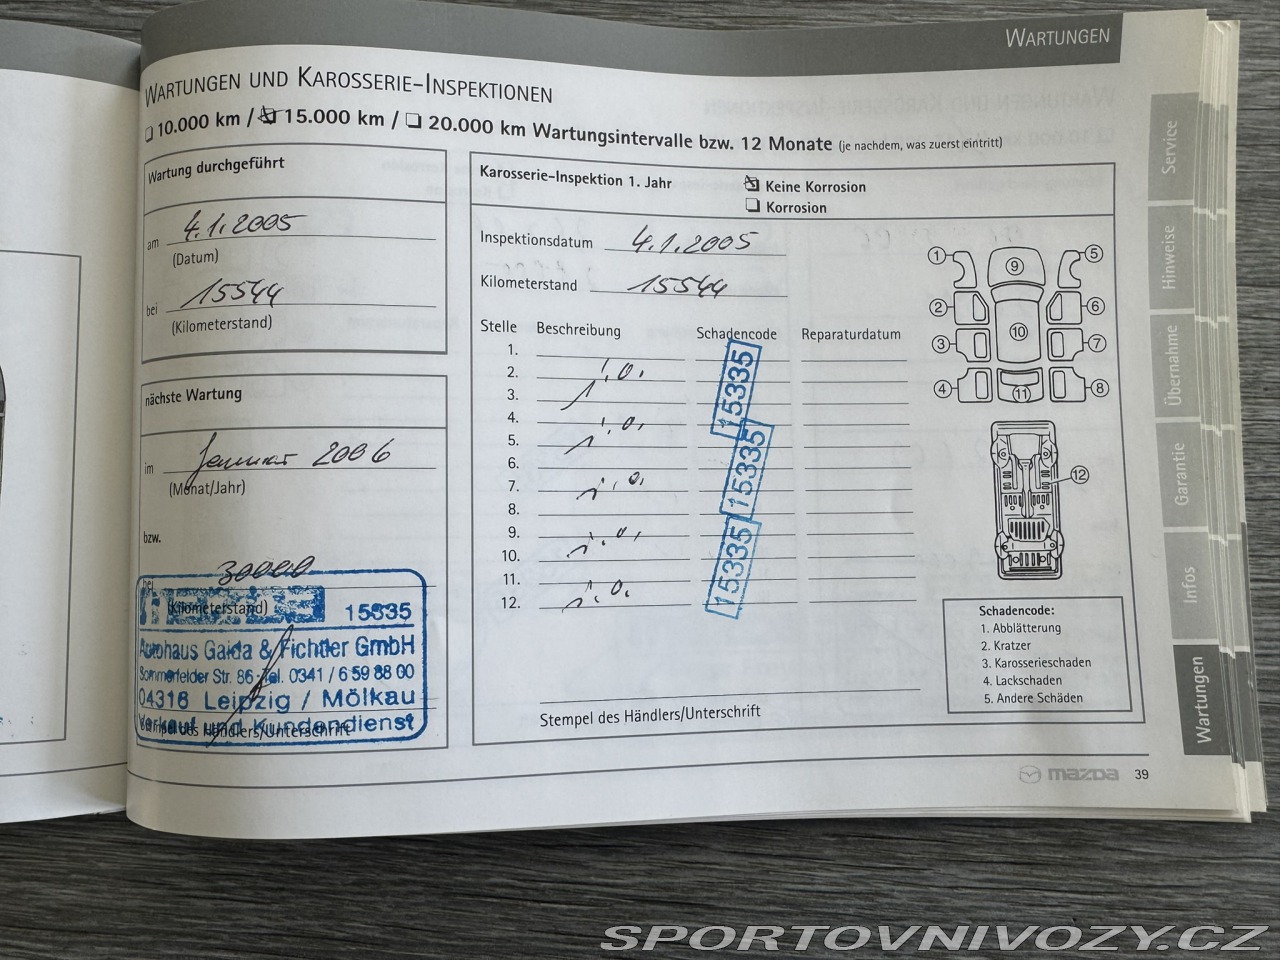 WARTUNGEN
WARTUNGEN UND KAROSSERIE-INSPEKTIONEN
10.000 km / 15.000 km / 20.000 km Wartungsintervalle bzw. 12 Monate (je nachdem, was zuerst eintritt)
Wartung durchgeführt
am 4.1.2005
(Datum)
bei 15544
(Kilometerstand)
nächste Wartung
im Januar 2006
(Monat/Jahr)
bzw.
bei 30000
(Kilometerstand)
15335
Autohaus Gaida & Fichtler GmbH
Sommerfelder Str. 86, Tel. 0341 / 6 59 88 00
04316 Leipzig / Mölkau
Verkauf und Kundendienst
Stempel des Händlers/Unterschrift
Karosserie-Inspektion 1. Jahr
Keine Korrosion
Korrosion
Inspektionsdatum 4.1.2005
Kilometerstand 15544
Stelle Beschreibung Schadencode Reparaturdatum
1.
2. i.O.
3.
4. i.O.
5.
6.
7. i.O.
8.
9. i.O.
10.
11.
12. i.O.
15335
15335
15335
Stempel des Händlers/Unterschrift
1 9 5
2 6
10
3 7
4 11 8
12
Schadencode:
1. Abblätterung
2. Kratzer
3. Karosserieschaden
4. Lackschaden
5. Andere Schäden
mazda 39
Service
Hinweise
Übernahme
Garantie
Infos
Wartungen
SPORTOVNIVOZY.CZ